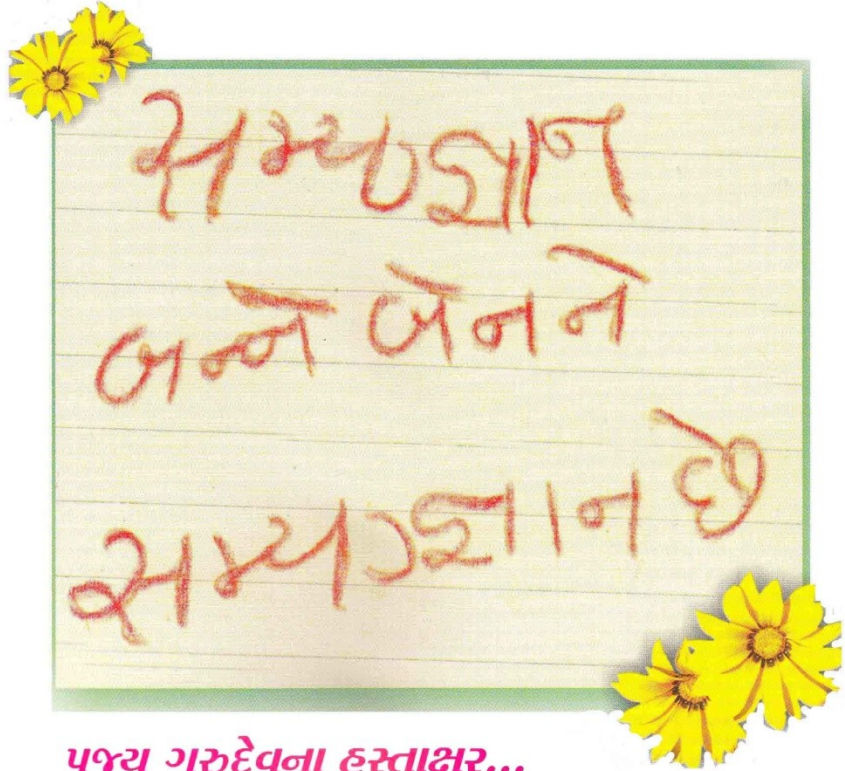 સમ્યજ્ઞાન
બન્ને બેનને
સમ્યગ્જ્ઞાન છે
પૂજ્ય ગુરુદેવના હસ્તાક્ષર...